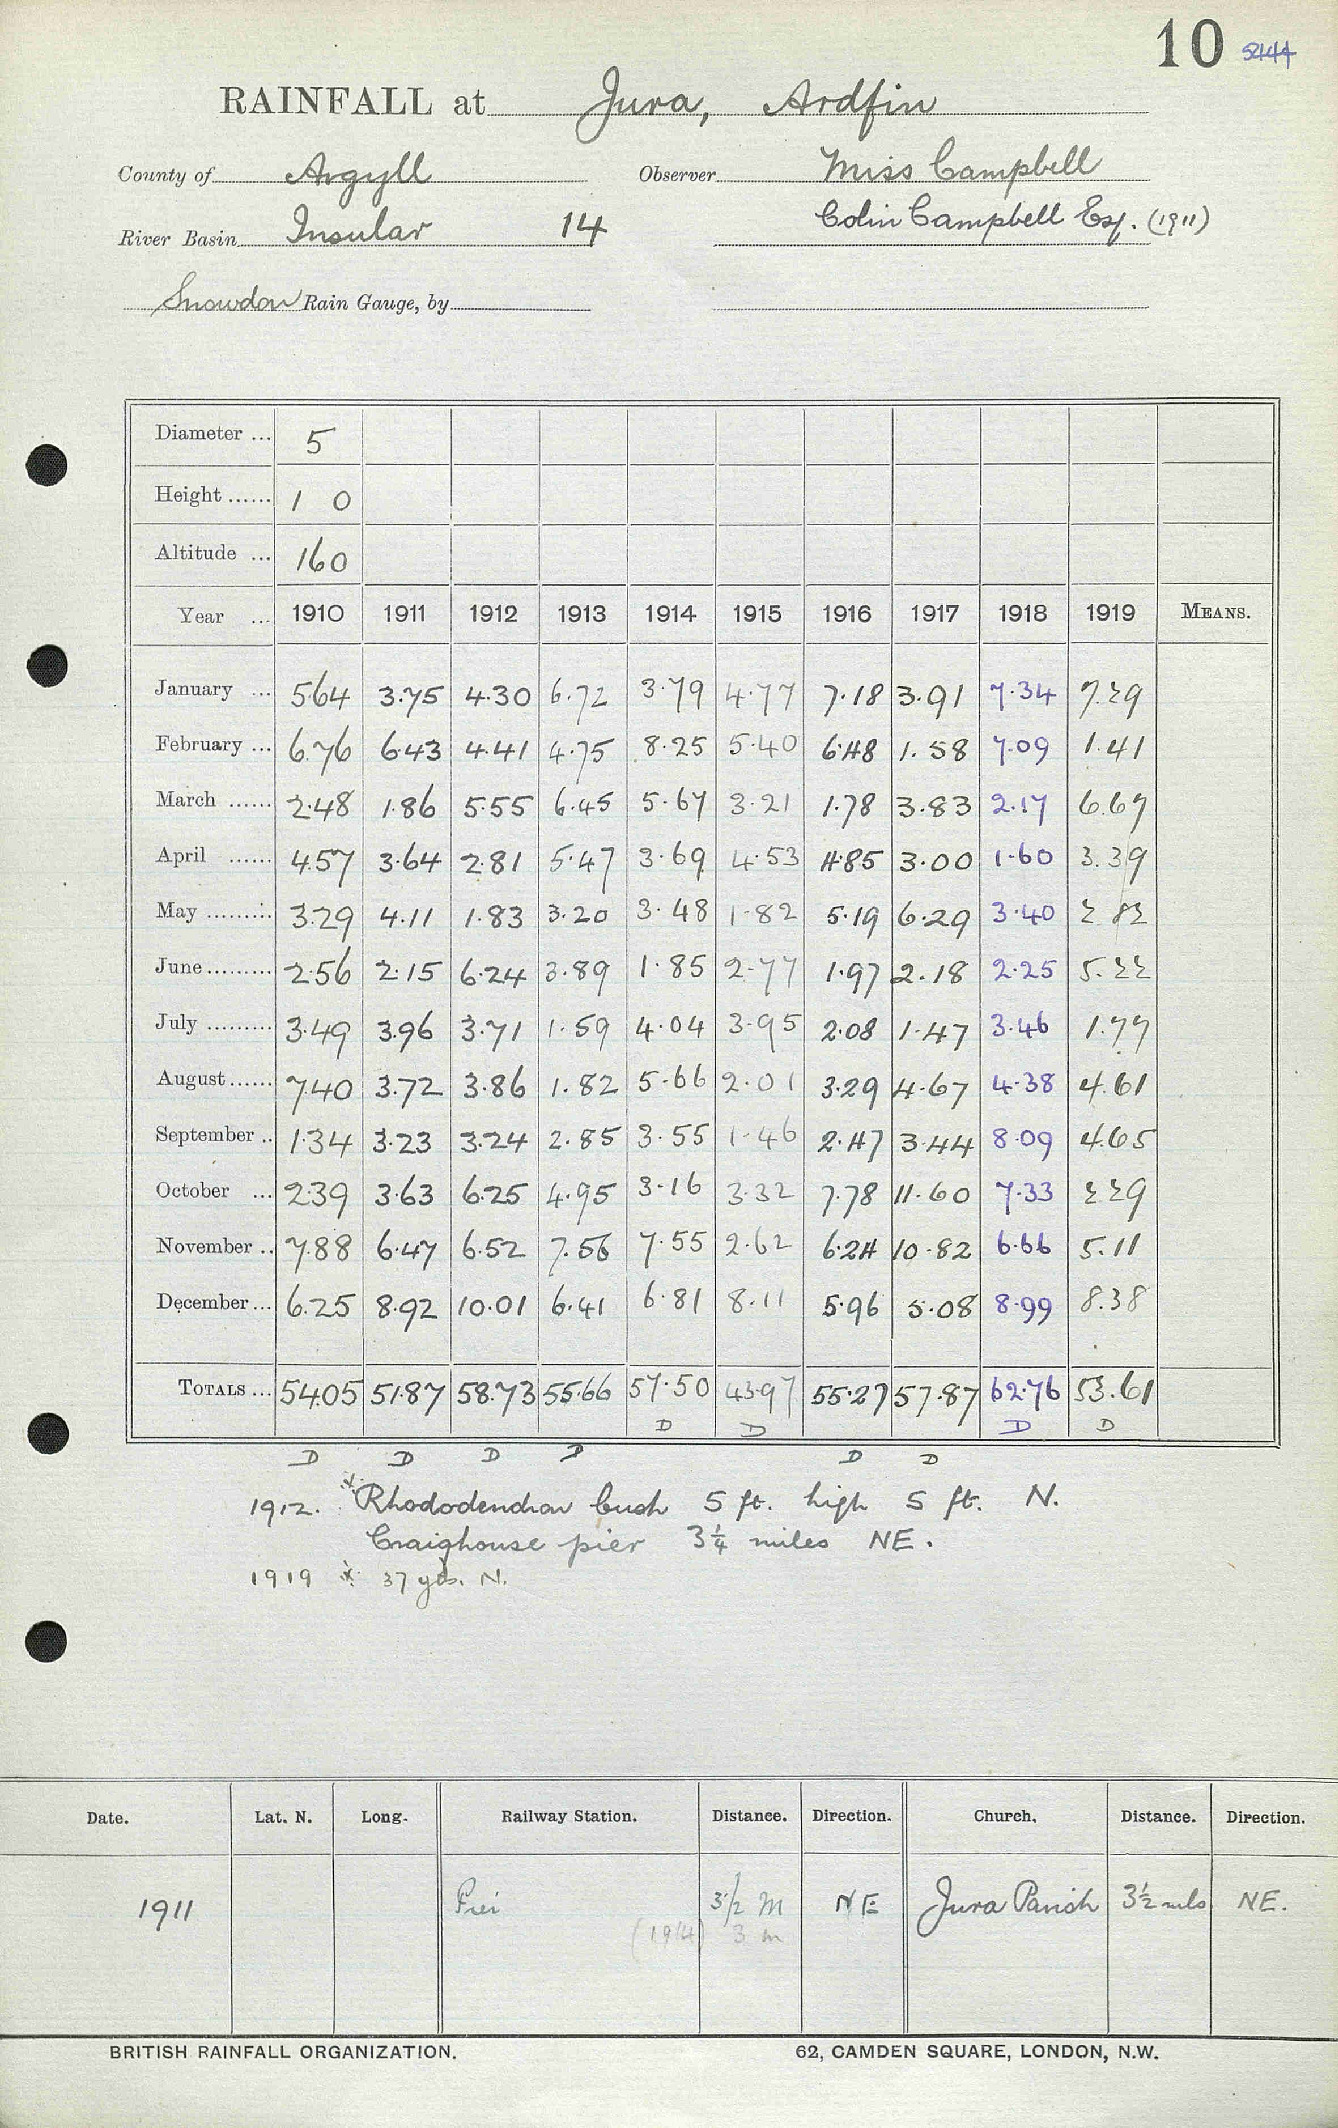 10 5444
RAINFALL at Jura, Ardfin
County of Argyll Observer Miss Campbell
River Basin Insular 14 Colin Campbell Esq. (1911)
Snowdon Rain Gauge, by
Diameter ... 5
Height ...... 1 0
Altitude ... 160
Year ... 1910 1911 1912 1913 1914 1915 1916 1917 1918 1919 MEANS.
January ... 564 3.75 4.30 6.72 3.79 4.77 7.18 3.91 7.34 7.29
February ... 6.76 6.43 4.41 4.75 8.25 5.40 6.48 1.58 7.09 1.41
March ...... 2.48 1.86 5.55 6.45 5.67 3.21 1.78 3.83 2.17 6.67
April ...... 4.57 3.64 2.81 5.47 3.69 4.53 4.85 3.00 1.60 3.39
May ......... 3.29 4.11 1.83 3.20 3.48 1.82 5.19 6.29 3.40 2.82
June ......... 2.56 2.15 6.24 3.89 1.85 2.77 1.97 2.18 2.25 5.22
July ......... 3.49 3.96 3.71 1.59 4.04 3.95 2.08 1.47 3.46 1.77
August ...... 7.40 3.72 3.86 1.82 5.66 2.01 3.29 4.67 4.38 4.61
September .. 1.34 3.23 3.24 2.85 3.55 1.46 2.47 3.44 8.09 4.65
October ... 2.39 3.63 6.25 4.95 3.16 3.32 7.78 11.60 7.33 2.29
November .. 7.88 6.47 6.52 7.56 7.55 2.62 6.24 10.82 6.66 5.11
December ... 6.25 8.92 10.01 6.41 6.81 8.11 5.96 5.08 8.99 8.38
TOTALS ... 54.05 51.87 58.73 55.66 57.50 43.97 55.27 57.87 62.76 53.61
D D D D D D D D D D
1912. * Rhododendron bush 5 ft. high 5 ft. N.
Craighouse pier 3¼ miles NE.
1919 * 37 yds. N.
Date. Lat. N. Long. Railway Station. Distance. Direction. Church. Distance. Direction.
1911 Pier 3½ M NE Jura Parish 3½ mls NE.
(1914) 3 m
BRITISH RAINFALL ORGANIZATION. 62, CAMDEN SQUARE, LONDON, N.W.